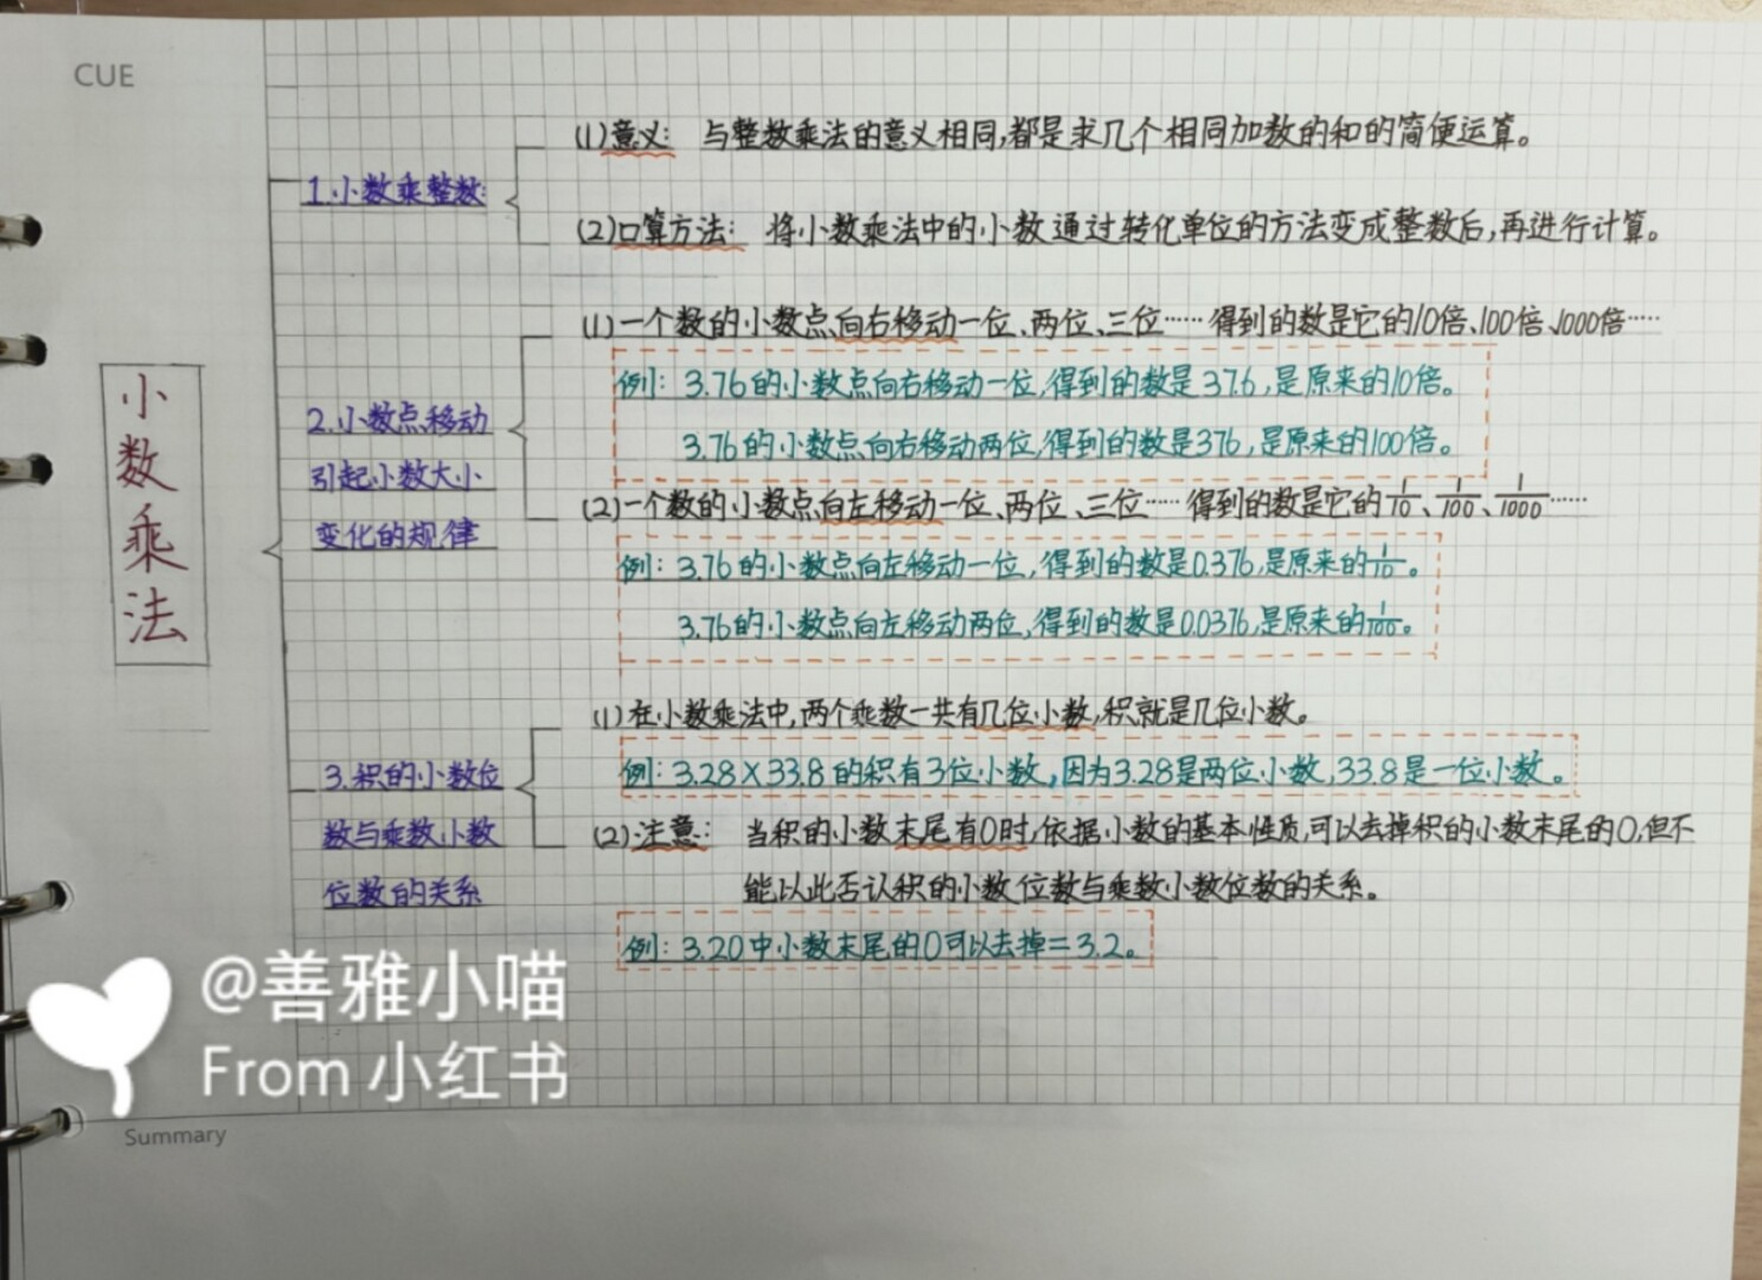 CUE
小数乘法
1.小数乘整数:
(1)意义: 与整数乘法的意义相同,都是求几个相同加数的和的简便运算。
(2)口算方法: 将小数乘法中的小数通过转化单位的方法变成整数后,再进行计算。
2.小数点移动
引起小数大小
变化的规律
(1)一个数的小数点向右移动一位、两位、三位……得到的数是它的10倍、100倍、1000倍……
例: 3.76的小数点向右移动一位,得到的数是37.6,是原来的10倍。
3.76的小数点向右移动两位,得到的数是376,是原来的100倍。
(2)一个数的小数点向左移动一位、两位、三位……得到的数是它的1/10、1/100、1/1000……
例: 3.76的小数点向左移动一位,得到的数是0.376,是原来的1/10。
3.76的小数点向左移动两位,得到的数是0.0376,是原来的1/100。
3.积的小数位
数与乘数小数
位数的关系
(1)在小数乘法中,两个乘数一共有几位小数,积就是几位小数。
例: 3.28×33.8的积有3位小数,因为3.28是两位小数,33.8是一位小数。
(2)注意: 当积的小数末尾有0时,依据小数的基本性质,可以去掉积的小数末尾的0,但不
能以此否认积的小数位数与乘数小数位数的关系。
例: 3.20中小数末尾的0可以去掉=3.2。
@善雅小喵
From 小红书
Summary